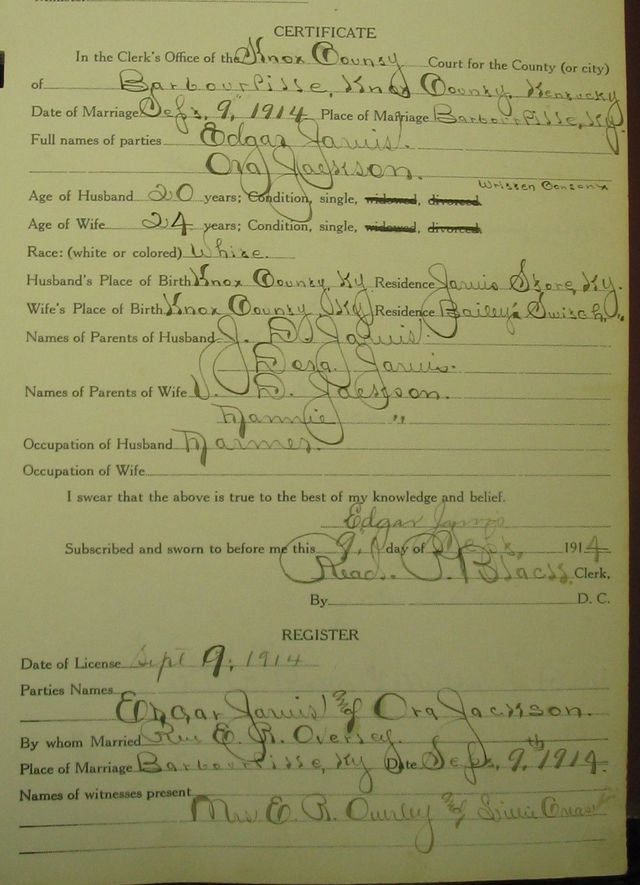 CERTIFICATE
In the Clerk's Office of the Knox County Court for the County (or city)
of Barbourville, Knox County, Kentucky
Date of Marriage Sept. 9, 1914 Place of Marriage Barbourville, Ky.
Full names of parties Edgar Jarvis.
Ora Jackson.
Written Consent
Age of Husband 20 years; Condition, single, widowed, divorced
Age of Wife 24 years; Condition, single, widowed, divorced
Race: (white or colored) White.
Husband's Place of Birth Knox County, Ky Residence Jarvis Store, Ky.
Wife's Place of Birth Knox County, Ky Residence Bailey's Switch, "
Names of Parents of Husband J. D. Jarvis.
Dora Jarvis.
Names of Parents of Wife D. Jackson.
Nannie "
Occupation of Husband Farmer.
Occupation of Wife
I swear that the above is true to the best of my knowledge and belief.
Edgar Jarvis
Subscribed and sworn to before me this 9, day of Sept, 1914
Read P. Black Clerk.
By D. C.
REGISTER
Date of License Sept 9, 1914
Parties Names
Edgar Jarvis and Ora Jackson.
By whom Married Rev E. R. Overley.
Place of Marriage Barbourville, Ky Date Sept, 9th, 1914.
Names of witnesses present
Mrs E. R. Overley and Lillie